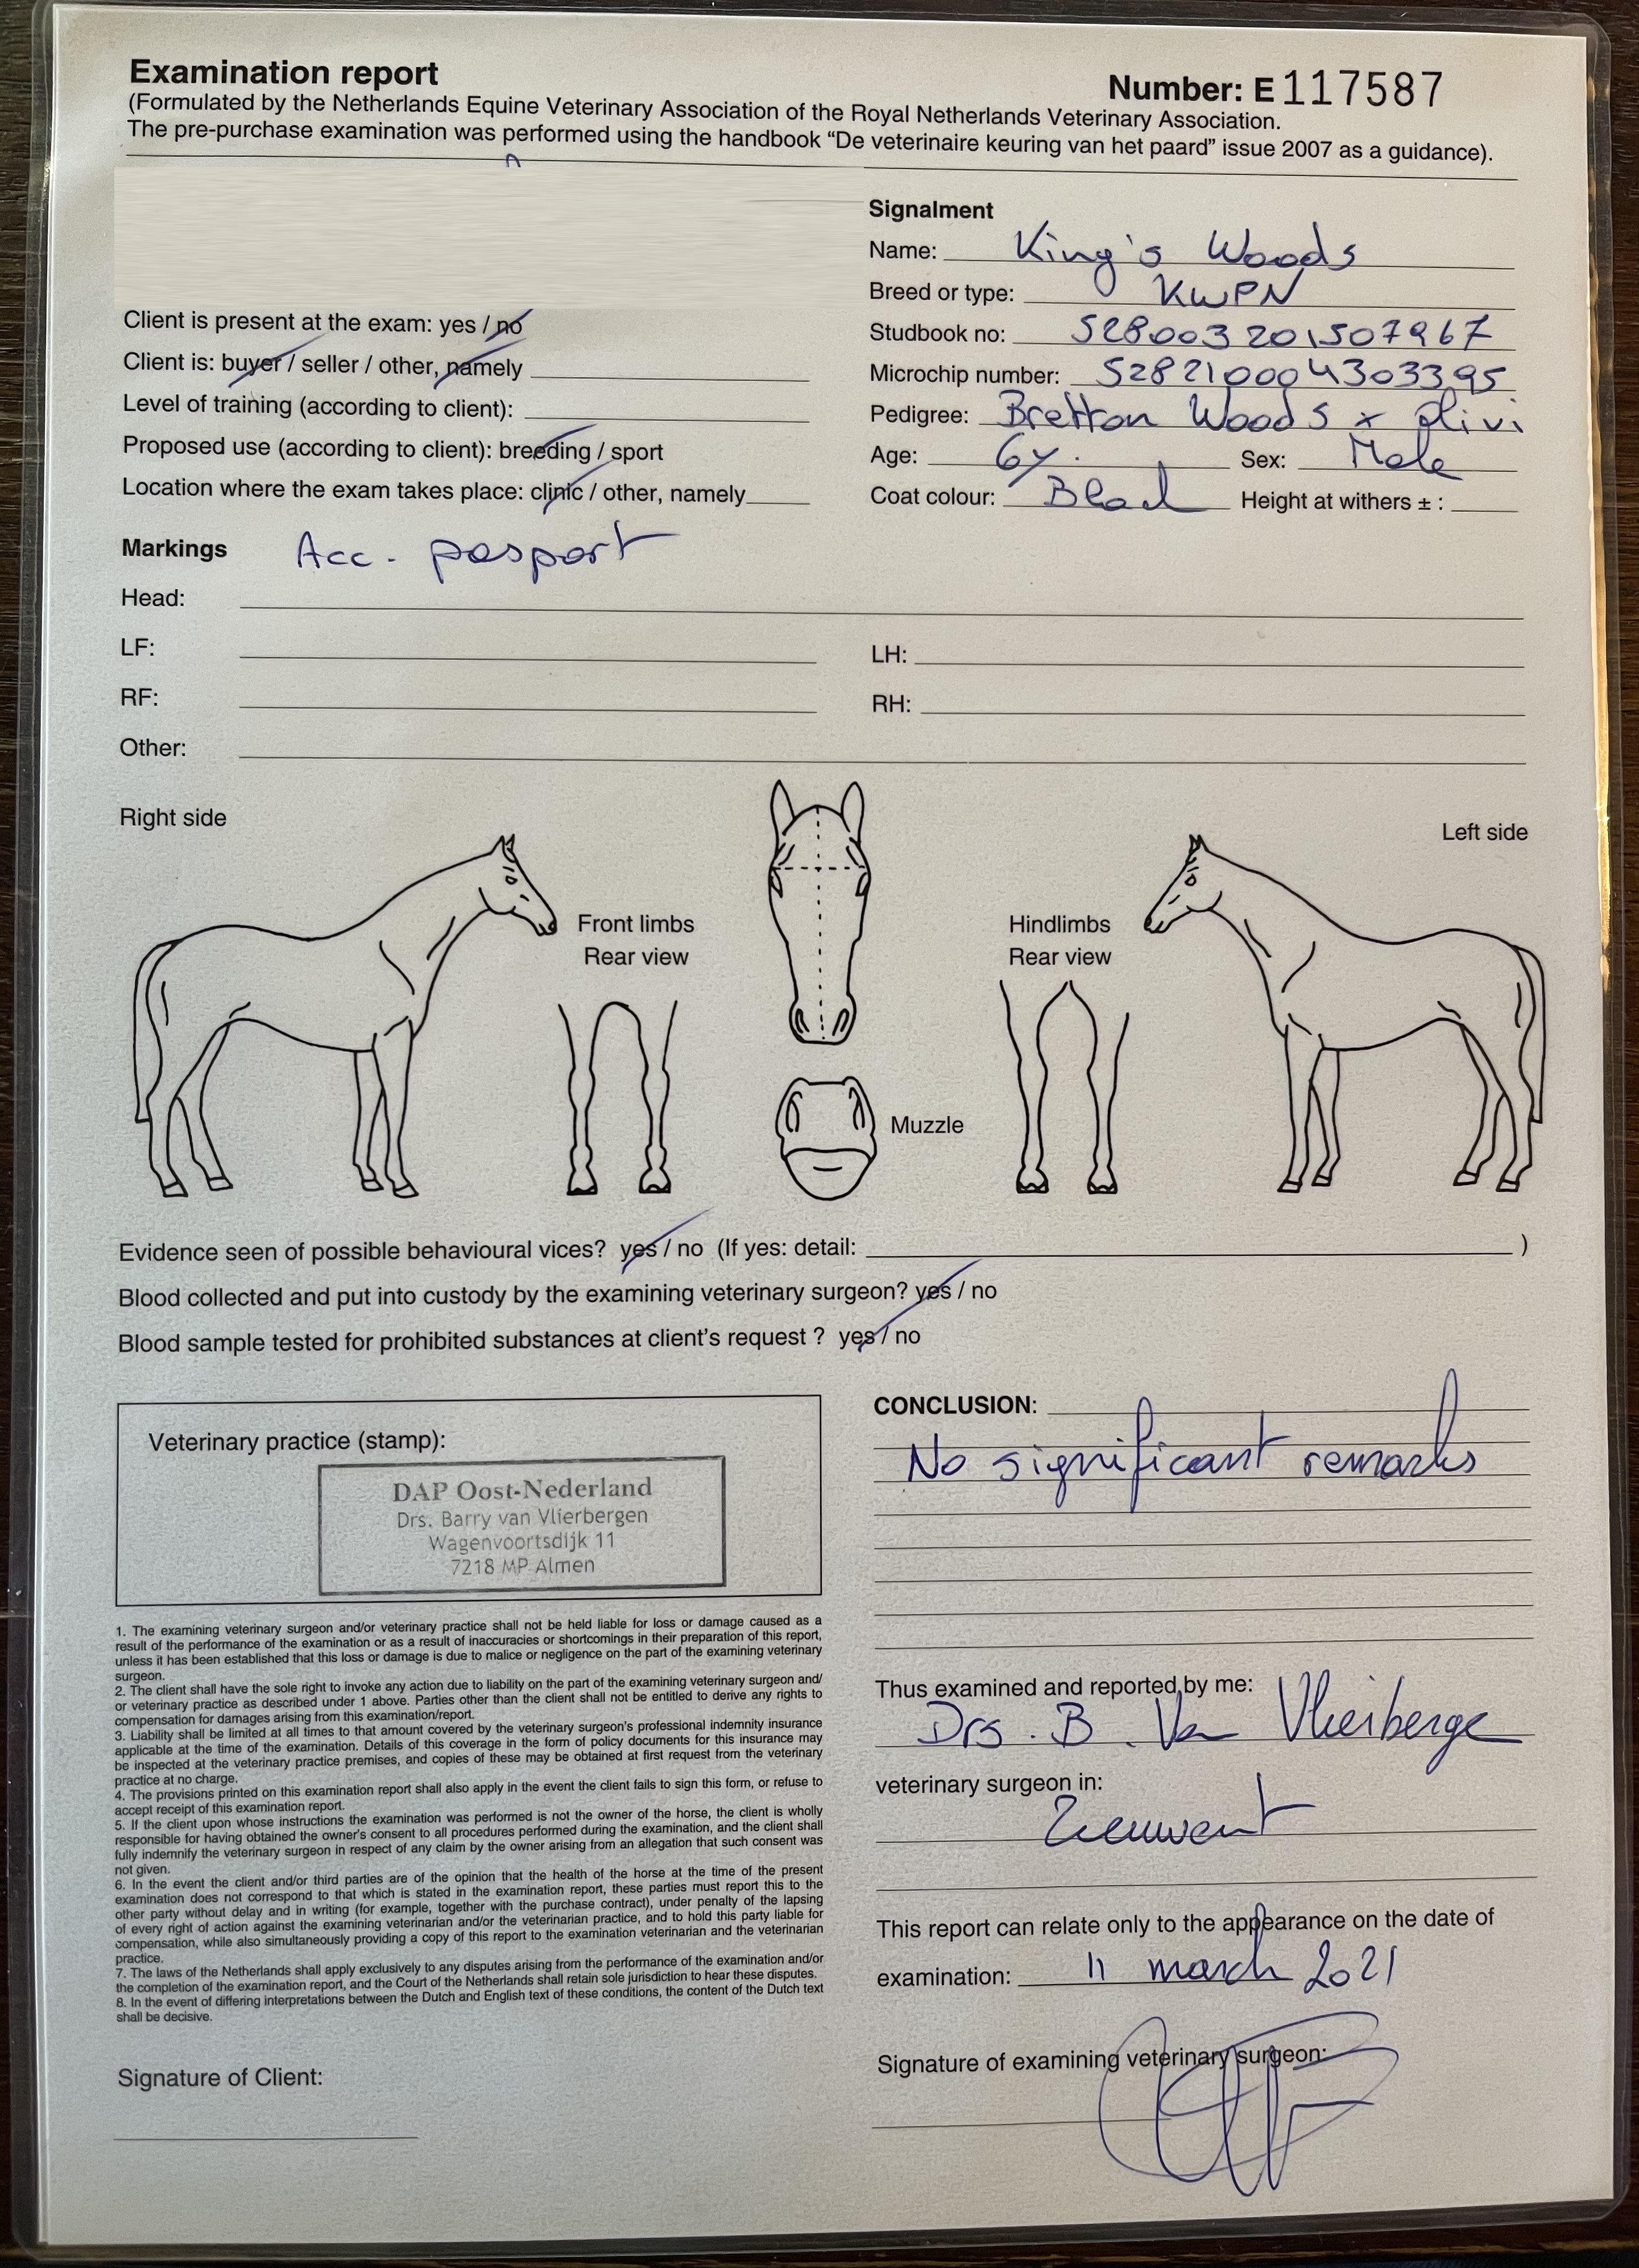 Examination report
Number: E 117587
(Formulated by the Netherlands Equine Veterinary Association of the Royal Netherlands Veterinary Association.
The pre-purchase examination was performed using the handbook “De veterinaire keuring van het paard” issue 2007 as a guidance).
Signalment
Name: King's Woods
Breed or type: KWPN
Studbook no: 528003201507967
Microchip number: 528210004303395
Pedigree: Bretton Woods x Olivi
Age: 6y. Sex: Male
Coat colour: Height at withers ± :
Client is present at the exam: yes / no
Client is: buyer / seller / other, namely
Level of training (according to client):
Proposed use (according to client): breeding / sport
Location where the exam takes place: clinic / other, namely
Markings Acc. pasport
Head:
LF: LH:
RF: RH:
Other:
Right side
Left side
Front limbs
Rear view
Hindlimbs
Rear view
Muzzle
Evidence seen of possible behavioural vices? yes / no (If yes: detail: )
Blood collected and put into custody by the examining veterinary surgeon? yes / no
Blood sample tested for prohibited substances at client's request ? yes / no
Veterinary practice (stamp):
DAP Oost-Nederland
Drs. Barry van Vlierbergen
Wagenvoortsdijk 11
7218 MP Almen
1. The examining veterinary surgeon and/or veterinary practice shall not be held liable for loss or damage caused as a
result of the performance of the examination or as a result of inaccuracies or shortcomings in their preparation of this report,
unless it has been established that this loss or damage is due to malice or negligence on the part of the examining veterinary
surgeon.
2. The client shall have the sole right to invoke any action due to liability on the part of the examining veterinary surgeon and/
or veterinary practice as described under 1 above. Parties other than the client shall not be entitled to derive any rights to
compensation for damages arising from this examination/report.
3. Liability shall be limited at all times to that amount covered by the veterinary surgeon's professional indemnity insurance
applicable at the time of the examination. Details of this coverage in the form of policy documents for this insurance may
be inspected at the veterinary practice premises, and copies of these may be obtained at first request from the veterinary
practice at no charge.
4. The provisions printed on this examination report shall also apply in the event the client fails to sign this form, or refuse to
accept receipt of this examination report.
5. If the client upon whose instructions the examination was performed is not the owner of the horse, the client is wholly
responsible for having obtained the owner's consent to all procedures performed during the examination, and the client shall
fully indemnify the veterinary surgeon in respect of any claim by the owner arising from an allegation that such consent was
not given.
6. In the event the client and/or third parties are of the opinion that the health of the horse at the time of the present
examination does not correspond to that which is stated in the examination report, these parties must report this to the
other party without delay and in writing (for example, together with the purchase contract), under penalty of the lapsing
of every right of action against the examining veterinarian and/or the veterinarian practice, and to hold this party liable for
compensation, while also simultaneously providing a copy of this report to the examination veterinarian and the veterinarian
practice.
7. The laws of the Netherlands shall apply exclusively to any disputes arising from the performance of the examination and/or
the completion of the examination report, and the Court of the Netherlands shall retain sole jurisdiction to hear these disputes.
8. In the event of differing interpretations between the Dutch and English text of these conditions, the content of the Dutch text
shall be decisive.
Signature of Client:
CONCLUSION:
No significant remarks
Thus examined and reported by me:
Drs. B. Van Vlierberge
veterinary surgeon in:
Zieuwent
This report can relate only to the appearance on the date of
examination: 11 march 2021
Signature of examining veterinary surgeon: